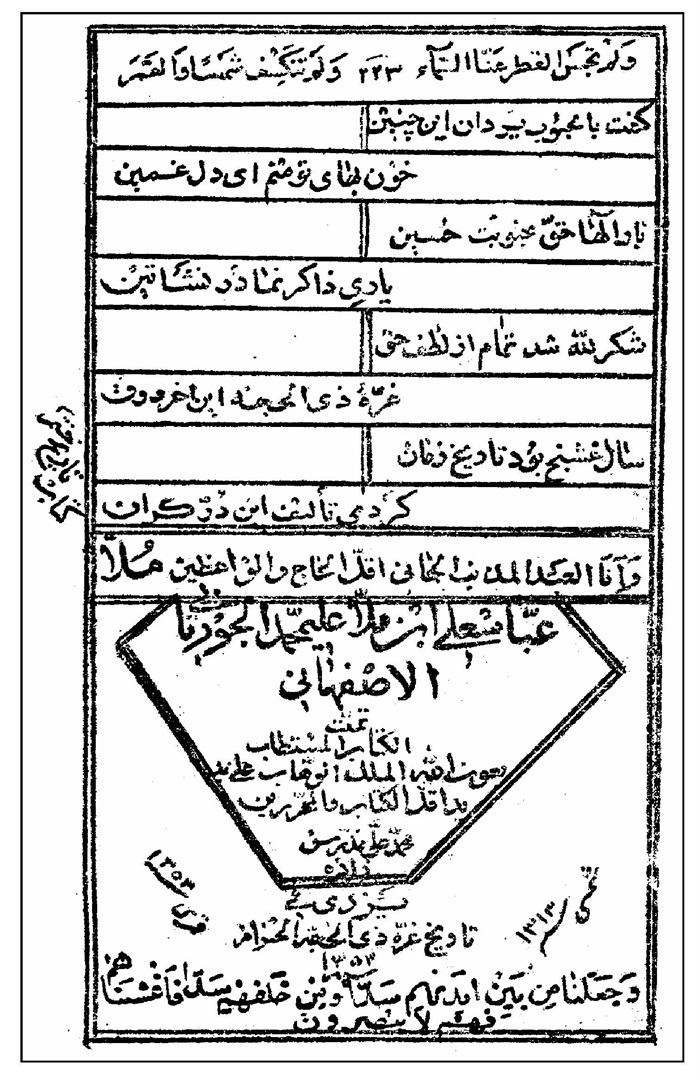 وَلَمْ تحبس القطر عنّا السّماء ۲۲۳ وَلَمْ تنكسف شمسًا والقمر
گفت با محبوب یزدان این چنین
خون بهای تو منم ای دل غمین
بارالها حقّ محبوبت حسین
یادیِ ذاکر نما در نشأتین
شکر لله شد تمام از لطف حق
غرّهٔ ذی الحجه این اخر ورق
سال غشنج بود تاریخ زمان
کردمی تألیف این دُرّ گران
وَاَنَا العبد المذنب الجانی اقلّ الحاج والواعظین مُلاّ
عبّاسعلی ابن ملاّ علیمحمّد الجوزی
الاصفهانی
تمّت
الکتاب المستطاب
بعون الله الملک الوهاب علی ید
اقل الکتاب والمحررین
محمد علی مدرس
زاده
یزدی
تاریخ غرّه ذی الحجة الحرام
۱۳۵۳
قمری ۱۳۵۳
شمسی ۱۳۱۳
وَجعلنا من بین ایدیهم سدّاً ومن خلفهم سدّاً فاغشیناهم
فهم لا یبصرون